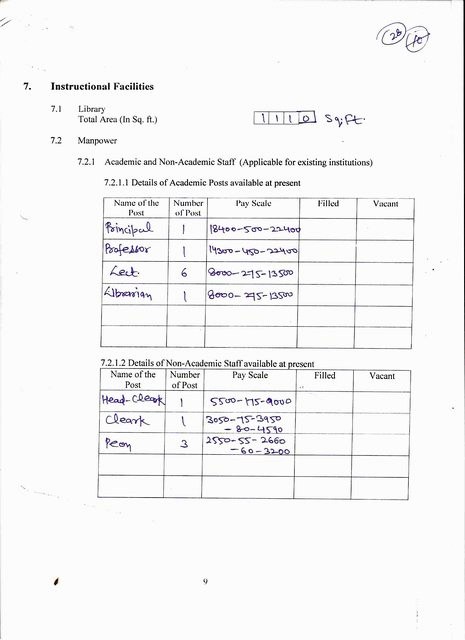 28
10
7. Instructional Facilities
7.1 Library
Total Area (In Sq. ft.) 1110 Sq.Ft.
7.2 Manpower
7.2.1 Academic and Non-Academic Staff (Applicable for existing institutions)
7.2.1.1 Details of Academic Posts available at present
Name of the Post Number of Post Pay Scale Filled Vacant
Principal 1 18400-500-22400
Professor 1 14300-450-22400
Lect 6 8000-275-13500
Librarian 1 8000-275-13500
7.2.1.2 Details of Non-Academic Staff available at present
Name of the Post Number of Post Pay Scale Filled Vacant
Head-Cleark 1 5500-175-9000
Cleark 1 3050-75-3950
-80-4590
Peon 3 2550-55-2660
-60-3200
9